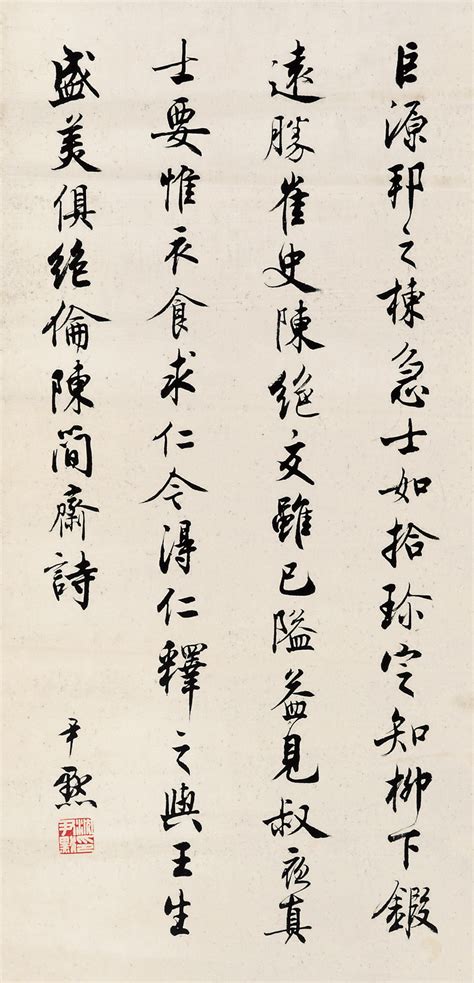 巨源邦之棟急士如拾珍定知柳下鍛
遠勝崔史陳絕交雖已隘益見叔夜真
士要惟衣食求仁今得仁釋之與王生
盛美俱絕倫陳簡齋詩
尹默